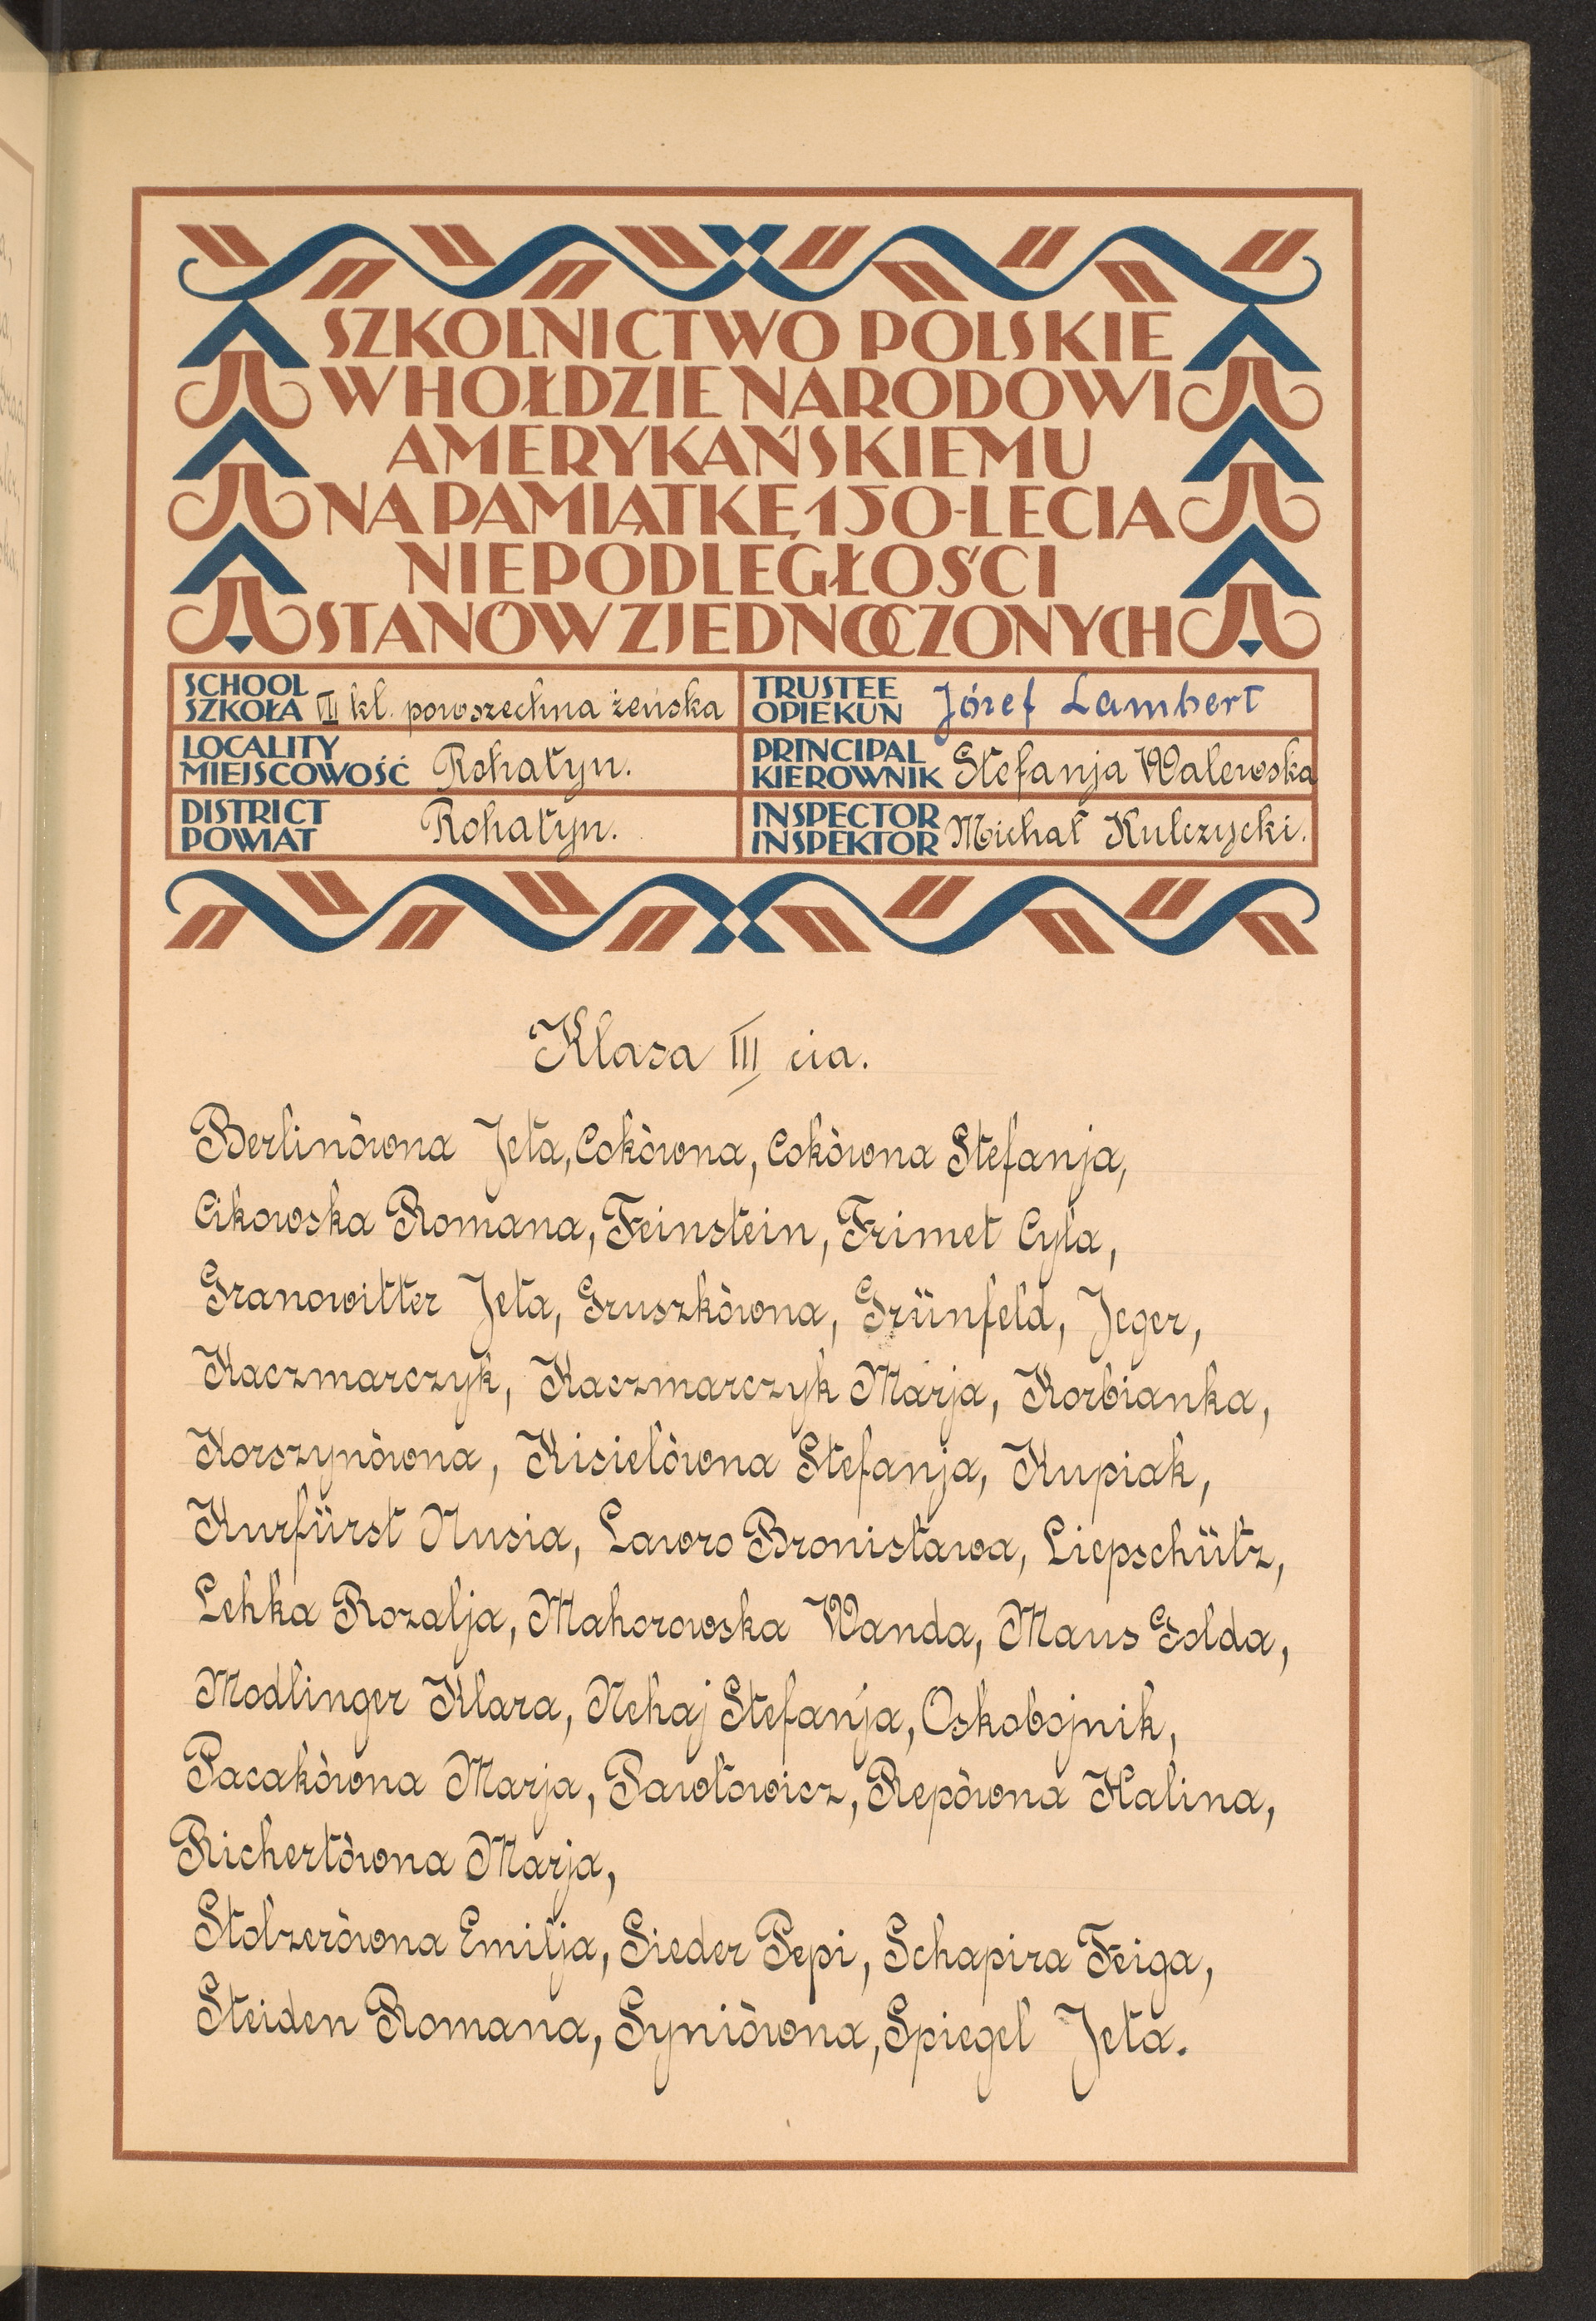 SZKOLNICTWO POLSKIE
W HOŁDZIE NARODOWI
AMERYKAŃSKIEMU
NA PAMIĄTKĘ 150-LECIA
NIEPODLEGŁOŚCI
STANÓW ZJEDNOCZONYCH
SCHOOL
SZKOŁA VII kl. powszechna żeńska
LOCALITY
MIEJSCOWOŚĆ Rohatyn.
DISTRICT
POWIAT Rohatyn.
TRUSTEE
OPIEKUN Józef Lambert
PRINCIPAL
KIEROWNIK Stefanja Walewska
INSPECTOR
INSPEKTOR Michał Kulczycki.
Klasa III cia.
Berlinówna Jeta, Cokówna, Cokówna Stefanja,
Cikowska Romana, Feinstein, Frimet Cyla,
Granowitter Jeta, Gruszkówna, Grünfeld, Jeger,
Kaczmarczyk, Kaczmarczyk Marja, Korbianka,
Korszynówna, Kisielówna Stefanja, Kupiak,
Kurfürst Nusia, Lawro Bronisława, Liepschütz,
Lehka Rozalja, Mahorowska Wanda, Maus Golda,
Modlinger Klara, Nehaj Stefanja, Oskobojnik,
Pacakówna Marja, Pawłowicz, Repówna Halina,
Richertówna Marja,
Stolzerówna Emilja, Sieder Pepi, Schapira Feiga,
Steiden Romana, Syniówna, Spiegel Jeta.